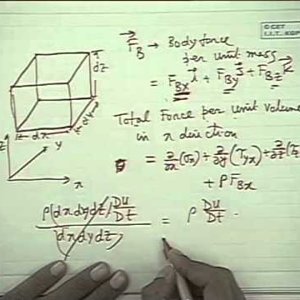 © CET
I.I.T. KGP
F_B → Body force
per unit mass
= F_Bx i + F_By j + F_Bz k
Total Force per unit volume
in x direction
= ∂/∂x (σx) + ∂/∂y (τyx) + ∂/∂z
+ ρ F_Bx
ρ(dx dy dz) Du/Dt / (dx dy dz) = ρ Du/Dt
dz
dy
dx
z
y
x